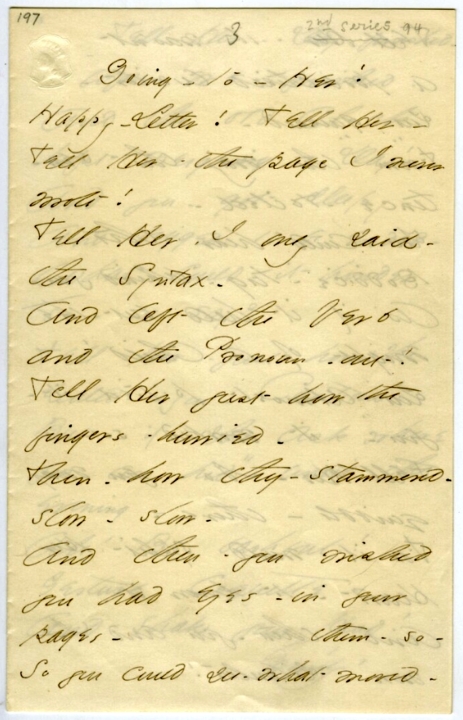 197
3
2nd Series. 94
Going - to - Her!
Happy - Letter! Tell Her -
Tell Her - the page I never
wrote!
Tell Her I only said -
the Syntax -
And left the Verb
and the Pronoun - out!
Tell Her just how the
fingers - hurried -
Then - how they - stammered -
slow - slow -
And then - you wished
you had Eyes - in your
pages - them - so -
So you could see - what moved -